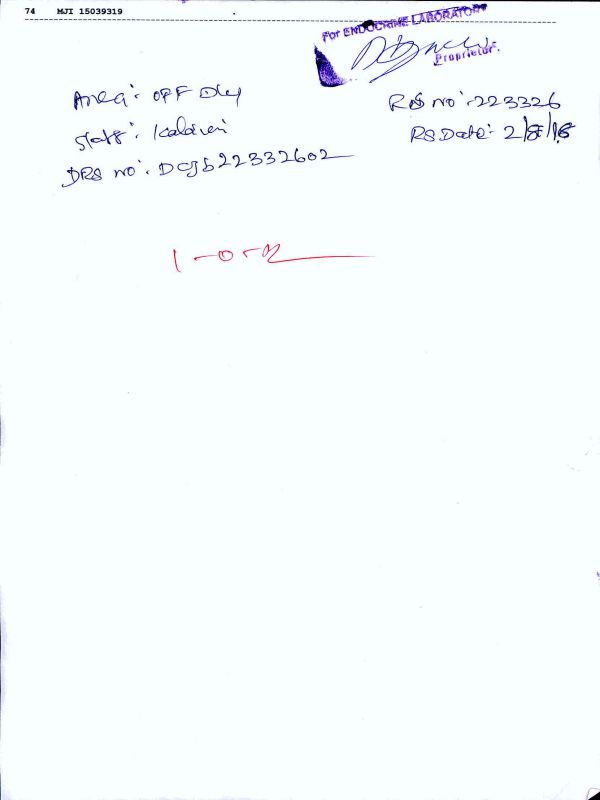 74 MJI 15039319
For ENDOCRINE LABORATORY
Proprietor.
Area: OFF Dly
RS No: 223326
Staff: Kalaivani
RS Date: 2/8/15
DRS No: DCJS22332602
1-0-2